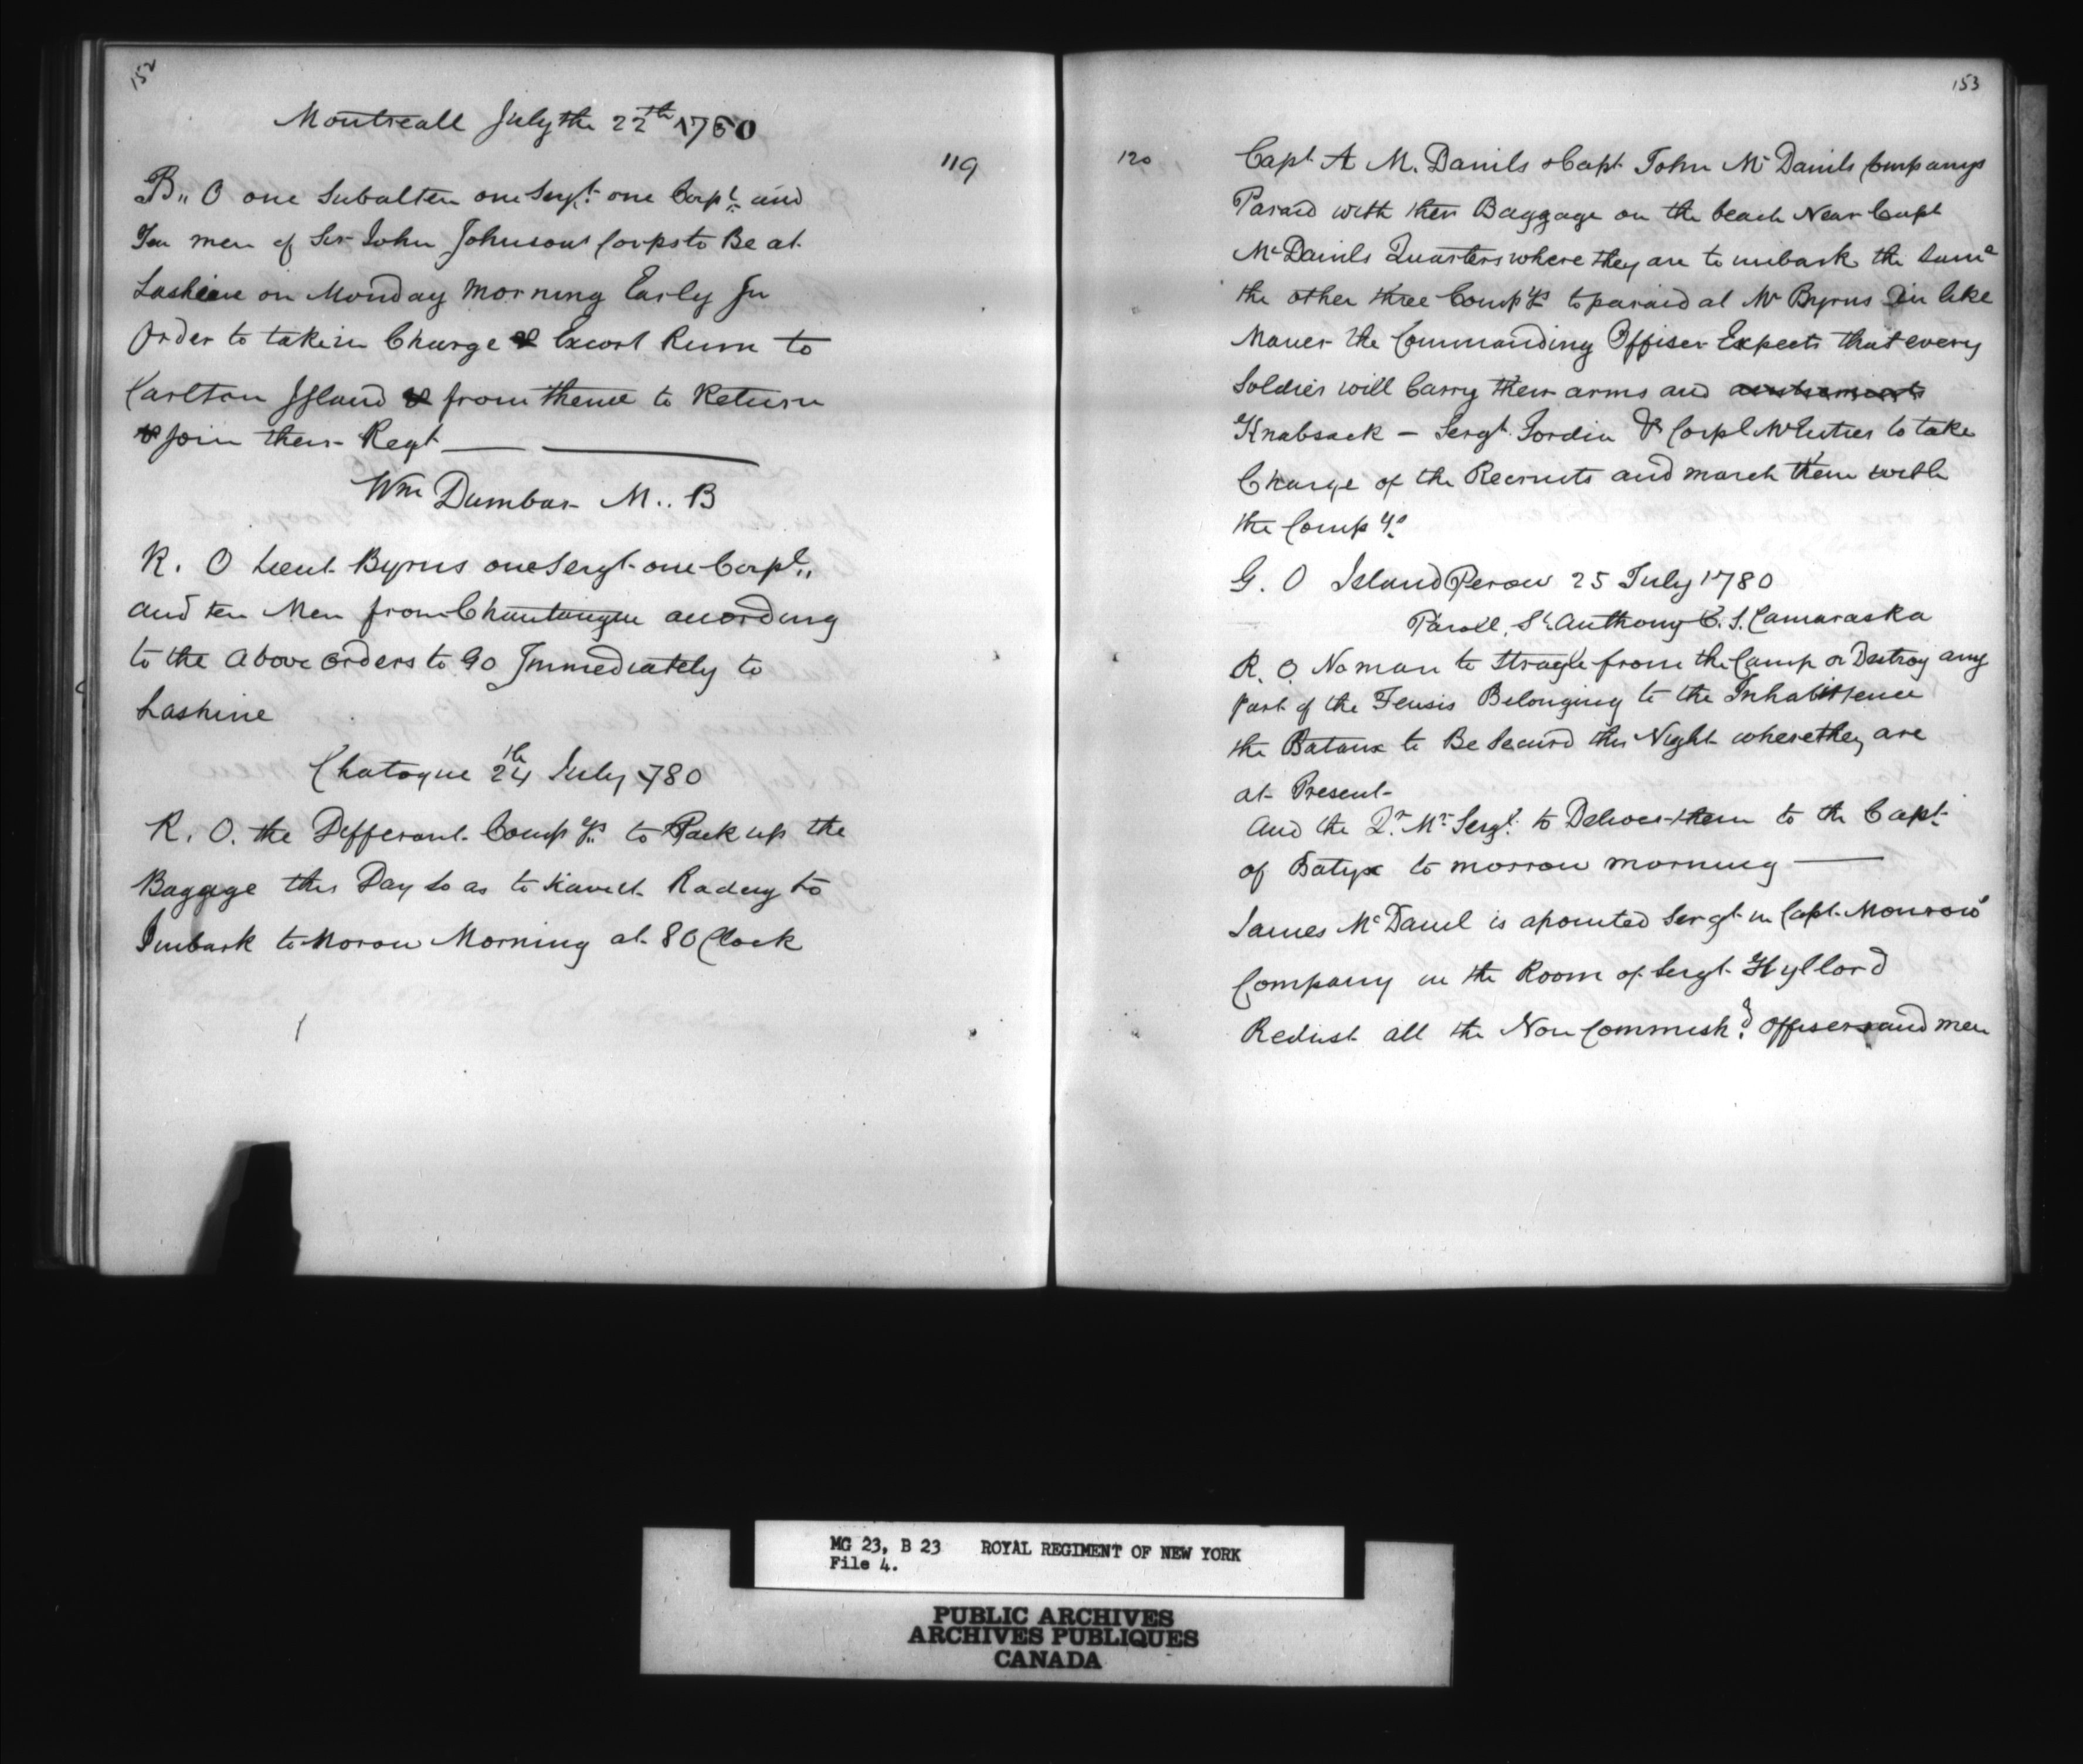 152
Montreall July the 22th 1780
119
B,, O one Subalten one Sergt. one Corpl. and
Ten men of Sir John Johnsons Corps to Be at
Lashine on Monday Morning Early In
Order to take in Charge & Excort Rum to
Carlton Island & from thence to Return
& Join their Regt
Wm Dumbar M.. B
R. O Lieut Byrns one Sergt one Corpl,,
and ten Men from Chautaugue acording
to the Above orders to Go Immediately to
Lashine
Chatogue 24th July 1780
R. O. the Defferant Compys to Pack up the
Baggage this Day so as to have it Radey to
Imbark to Morow Morning at 8 O Clock
153
120
Capt A M. Danils & Capt John Mc Danils Companys
Paraid with their Baggage on the beach Near Capt
Mc Danils Quarters where they are to imbark the Same
the other three Compys to paraid at Mr Byrns in like
Maner the Commanding Offiser Expects that every
Soldier will Carry their arms and
Knabsack — Sergt Sordin & Corpl McIntier to take
Charge of the Recruits and march them with
the Compys
G. O Island Perow 25 July 1780
Paroll, St. Anthony C. S. Camaraska
R. O. No man to Stragle from the Camp or Destroy any
part of the Fensis Belonging to the Inhabittence
the Bataux to Be Secured this Night where they are
at Present
And the Qr. Mr. Sergt. to Deliver them to the Capt.
of Batyx to morrow morning
James Mc Danil is apointed Sergt in Capt Monrows
Company in the Room of Sergt Hyllard
Redust all the Non Commishd. offisers and men
MG 23, B 23 ROYAL REGIMENT OF NEW YORK
File 4.
PUBLIC ARCHIVES
ARCHIVES PUBLIQUES
CANADA